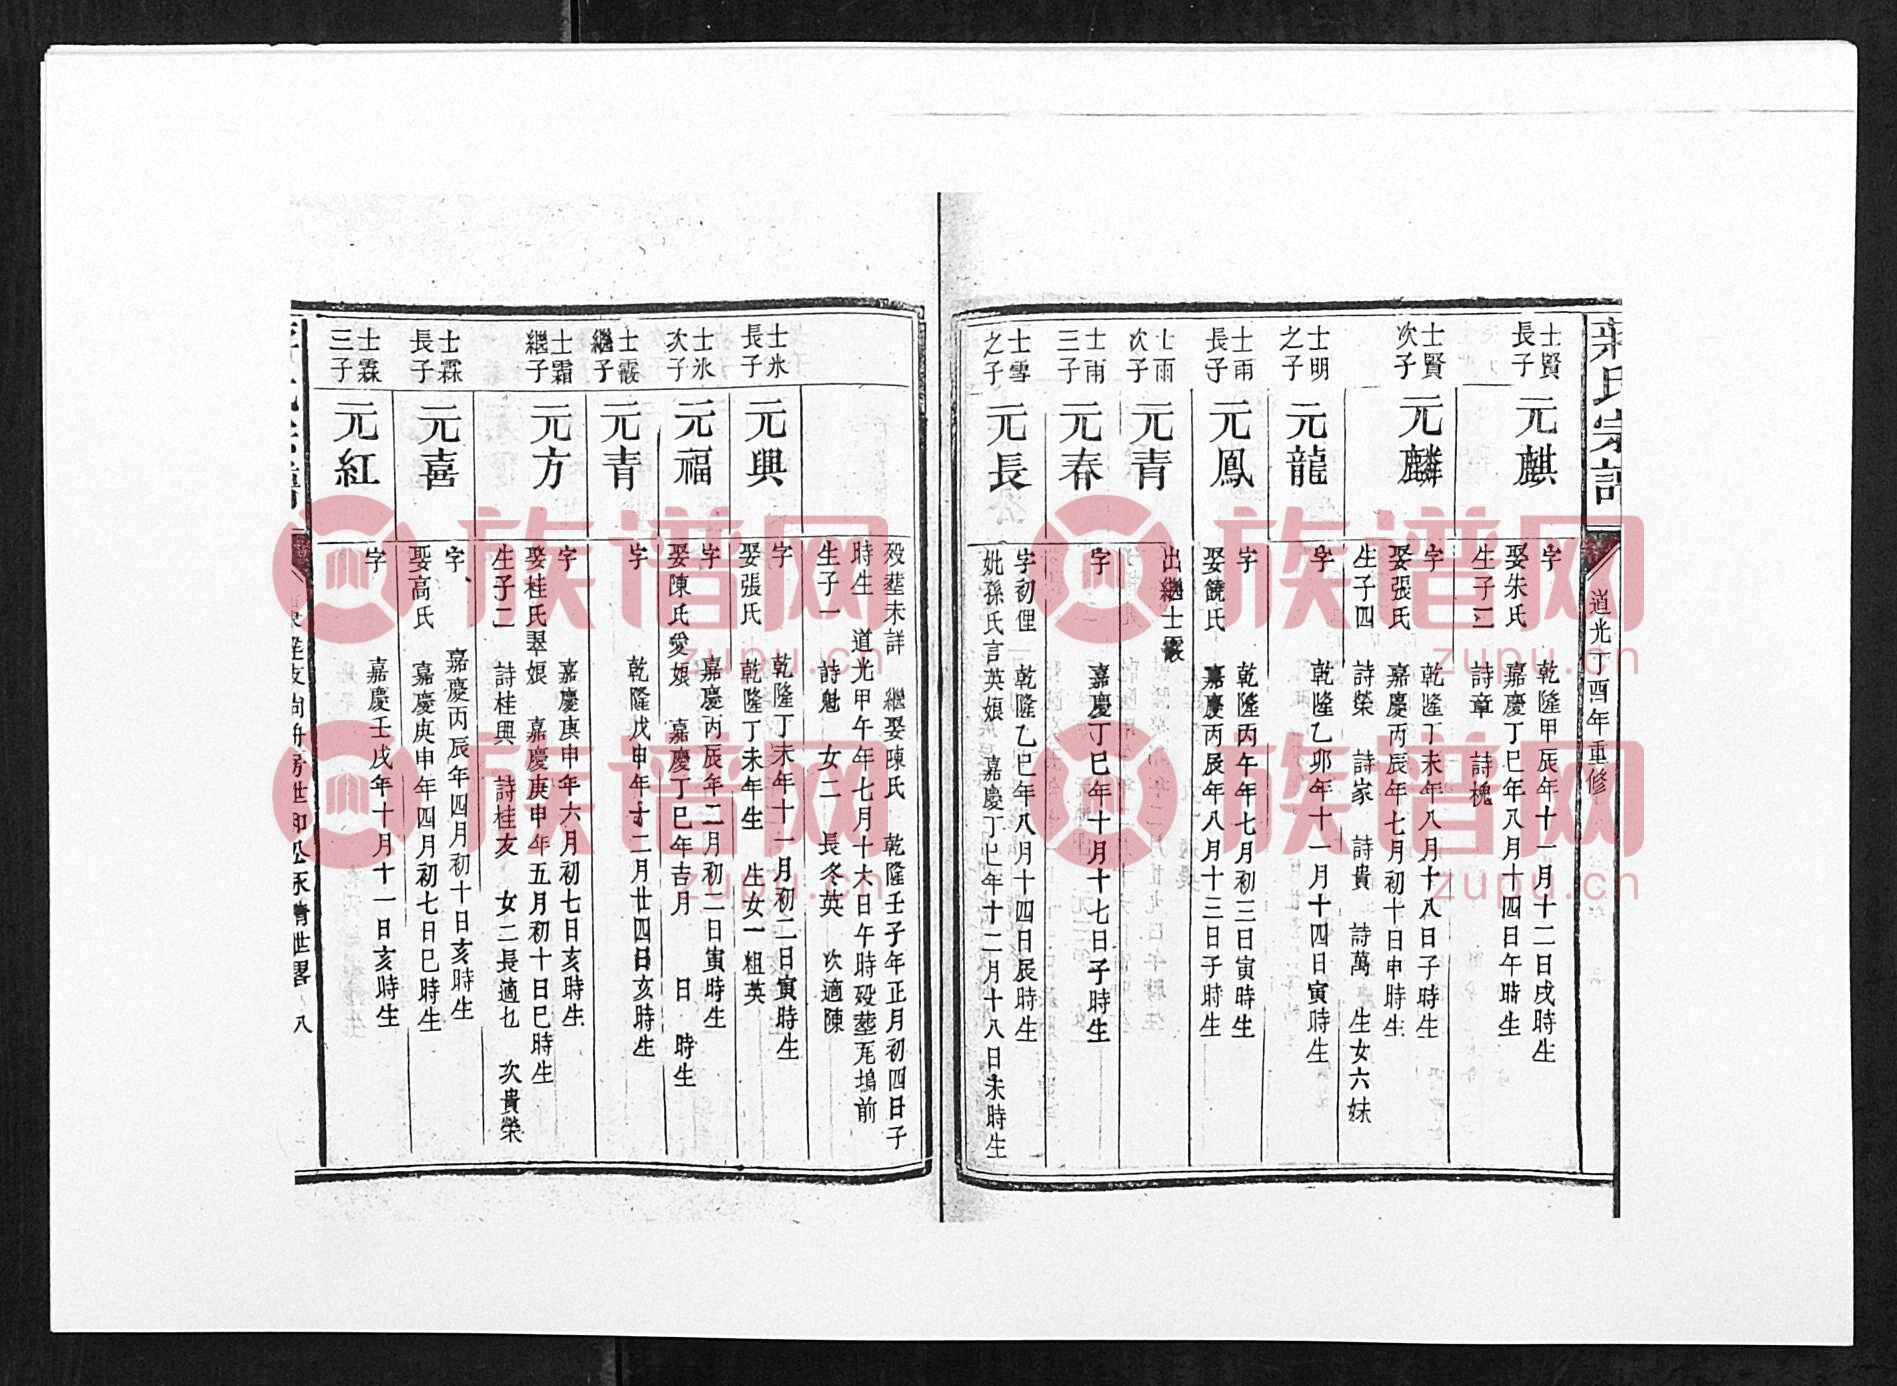 氏宗譜
道光丁酉年重修
士賢長子
元麒
字 乾隆甲辰年十一月十二日戌時生
娶朱氏 嘉慶丁巳年八月十四日午時生
生子二 詩章 詩槐
士賢次子
元麟
字 乾隆丁未年八月十八日子時生
娶張氏 嘉慶丙辰年七月初十日申時生
生子四 詩榮 詩家 詩貴 詩萬 生女六妹
士明之子
元龍
字 乾隆乙卯年十一月十四日寅時生
士雨長子
元鳳
字 乾隆丙午年七月初三日寅時生
娶饒氏 嘉慶丙辰年八月十三日子時生
士雨次子
元青
出繼士霰
士雨三子
元春
字 嘉慶丁巳年十月十七日子時生
士雪之子
元長
字初俚 乾隆乙巳年八月十四日辰時生
妣孫氏言英娘 嘉慶丁巳年十二月十八日未時生
歿塟未詳 繼娶陳氏 乾隆壬子年正月初四日子
時生 道光甲午年七月十六日午時歿塟芫塢前
生子一 詩魁 女二 長冬英 次適陳
士氷長子
元興
字 乾隆丁未年十一月初二日寅時生
娶張氏 乾隆丁未年生 生女一粗英
士氷次子
元福
字 嘉慶丙辰年二月初二日寅時生
娶陳氏愛娘 嘉慶丁巳年吉月 日 時生
士霰繼子
元青
字 乾隆戊申年十二月廿四日亥時生
士霜繼子
元方
字 嘉慶庚申年六月初七日亥時生
娶桂氏翠娘 嘉慶庚申年五月初十日巳時生
生子二 詩桂興 詩桂友 女二長適乜 次貴榮
士霖長子
元喜
字 嘉慶丙辰年四月初十日亥時生
娶高氏 嘉慶庚申年四月初七日巳時生
士霖三子
元紅
字 嘉慶壬戌年十月十一日亥時生
八
族谱网
zupu.cn
族谱网
zupu.cn
族谱网
zupu.cn
族谱网
zupu.cn